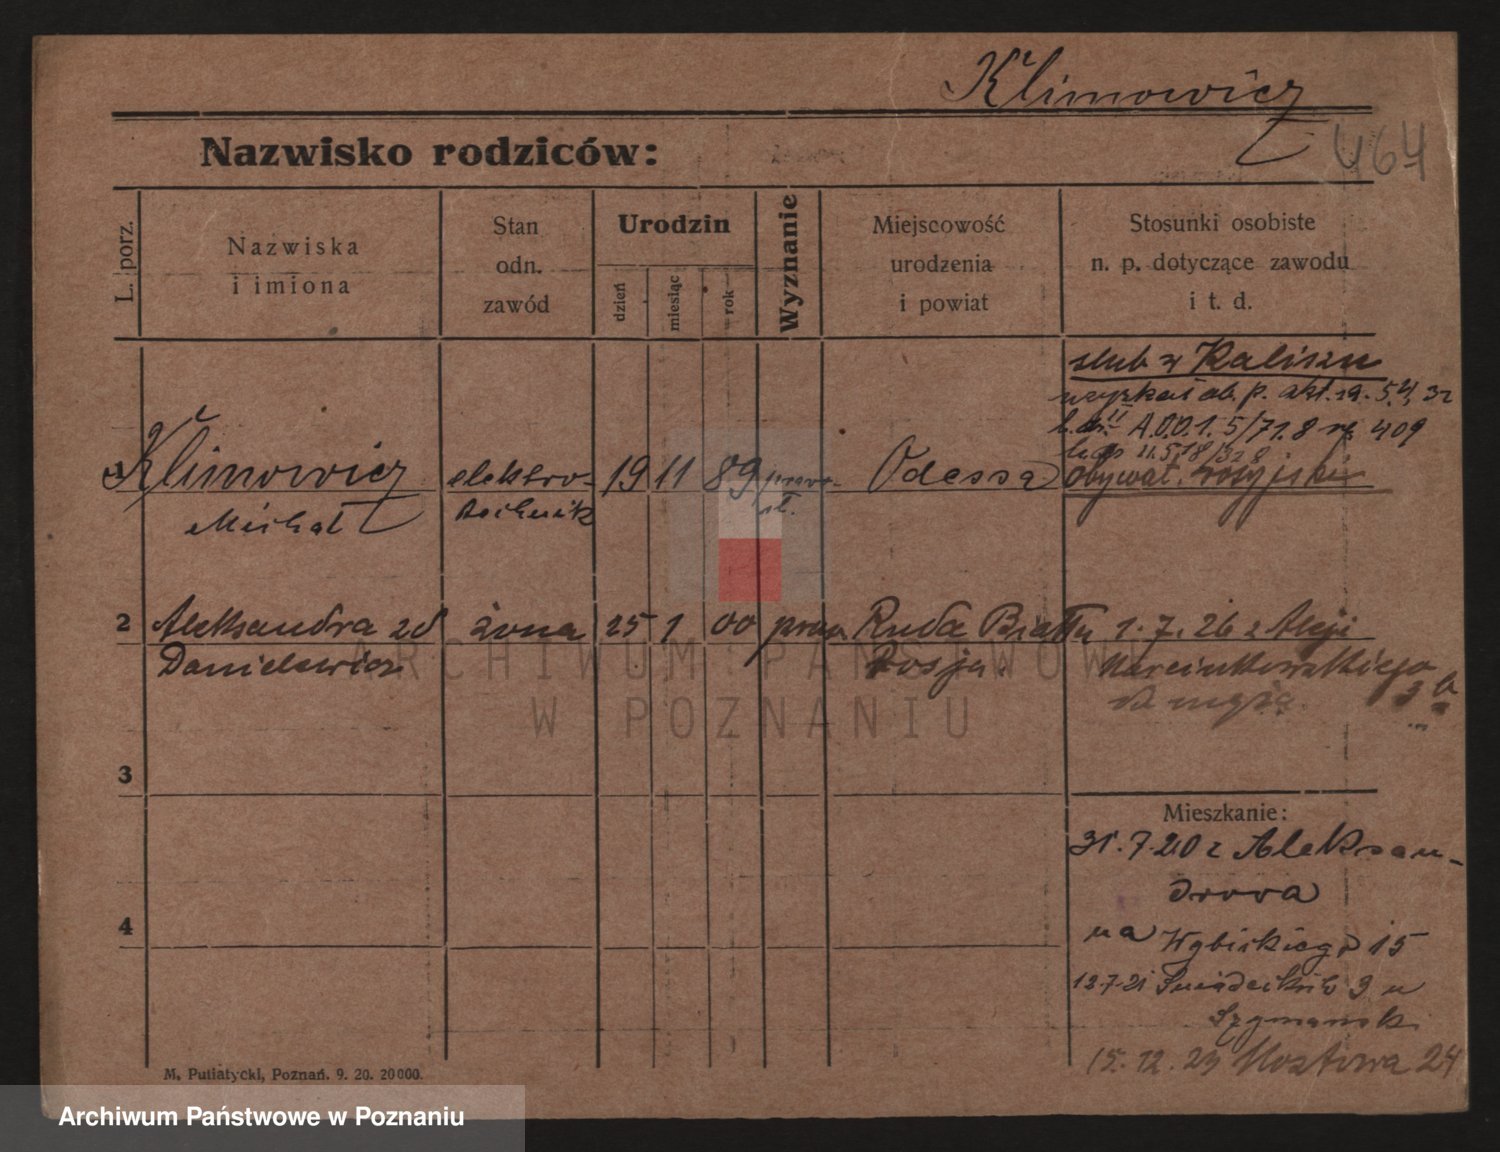 Klimowicz
464
Nazwisko rodziców:
L. porz.
Nazwiska
i imiona
Stan
odn.
zawód
Urodzin
dzień
miesiąc
rok
Wyznanie
Miejscowość
urodzenia
i powiat
Stosunki osobiste
n. p. dotyczące zawodu
i t. d.
slub w Kaliszu
5.4.32
A.O.O.1.5/71.8 409
obywat. rosyjski
Klimowicz elektro- 19 11 89 prawo- Odessa
Michał technik sł.
2 Aleksandra zd żona 25 1 00 praw. Ruda Biała 1.7.26 z Aleji
Danielewicz Rosja. Marcinkowskiego 3a
do męża
3
Mieszkanie:
31.7.20 z Aleksan-
drowa
4
na Wybickiego 15
12.7.21 Śniadeckich 9 u
Szymańsk
15.12.23 Mostowa 24
M. Putiatycki, Poznań. 9. 20. 20000.
ARCHIWUM PAŃSTWOWE
W POZNANIU
Archiwum Państwowe w Poznaniu